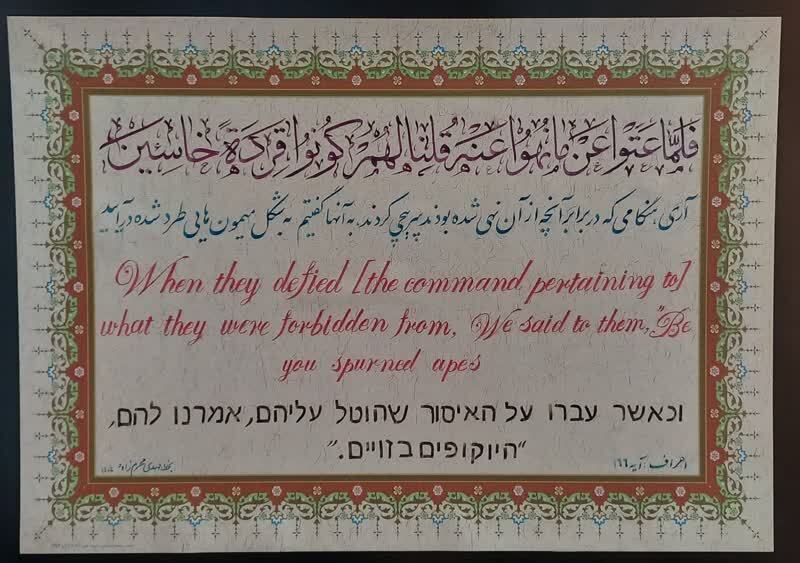 فَلَمَّا عَتَوْا عَنْ مَا نُهُوا عَنْهُ قُلْنَا لَهُمْ كُونُوا قِرَدَةً خَاسِئِينَ
آری هنگامی که در برابر آنچه از آن نهی شده بودند سرپیچی کردند، به آنها گفتیم به شکل میمون هایی طرد شده درآیید
When they defied [the command pertaining to]
what they were forbidden from, We said to them, "Be
you spurned apes
וכאשר עברו על האיסור שהוטל עליהם, אמרנו להם,
"היוקופים בזויים."
اعراف: آیه ۱۶۶
بخط مهدی